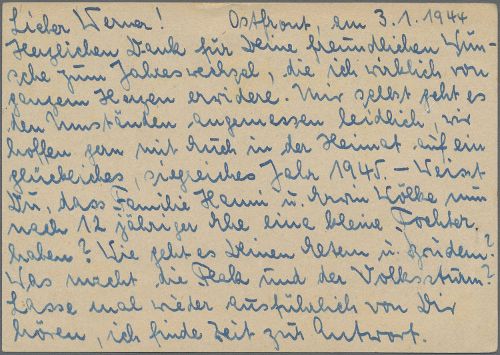 Lieber Werner! Ostfront, am 3.1.1944
Herzlichen Dank für Deine freundlichen Wün-
sche zum Jahreswechsel, die ich wirklich von
ganzem Herzen erwidere. Mir selbst geht es
den Umständen angemessen leidlich, wir
hoffen gern mit Euch in der Heimat auf ein
glückliches, siegreiches Jahr 1945. – Weisst
Du, dass Familie Hanni u. Erwin Wölke nun
nach 12 jähriger Ehe eine kleine Tochter
haben? Wie geht es Deinen Eltern u. Brüdern?
Was macht die Penk und der Volkssturm?
Lasse mal wieder ausführlich von Dir
hören, ich finde Zeit zur Antwort.